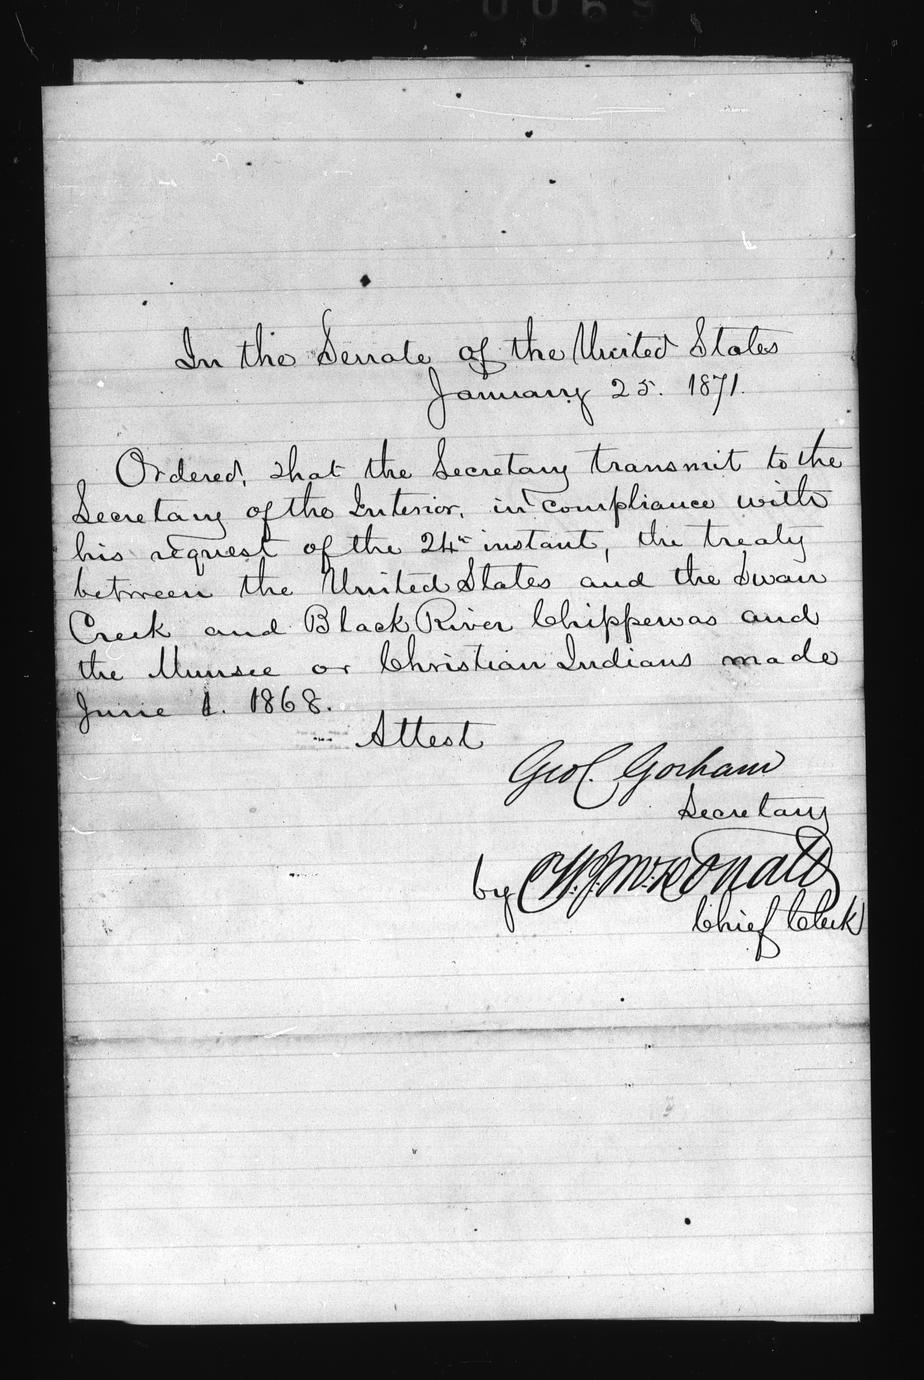 In the Senate of the United States
January 25. 1871.
Ordered, that the Secretary transmit to the
Secretary of the Interior, in compliance with
his request of the 24th instant, the treaty
between the United States and the Swan
Creek and Black River Chippewas and
the Munsee or Christian Indians made
June 1. 1868.
Attest
Geo C. Gorham
Secretary
by W. J. McDonald
Chief Clerk